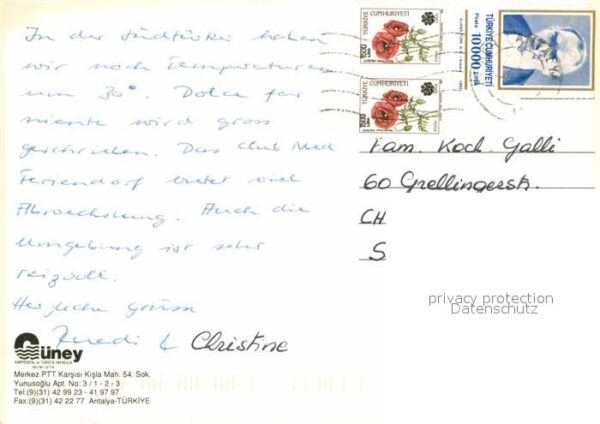 In der Südtürkei haben
wir noch Temperaturen
um 30° Dolce far
niente wird gross
geschrieben. Das Club Med
Feriendorf bietet viel
Abwechslung. Auch die
Umgebung ist sehr
reizvoll.
Herzliche Grüsse
Ruedi & Christine
Güney
Merkez PTT Karşısı Kışla Mah. 54. Sok.
Yunusoğlu Apt. No: 3 / 1 - 2 - 3
Tel:(9)(31) 42 99 23 - 41 97 97
Fax:(9)(31) 42 22 77 Antalya-TÜRKİYE
TÜRKİYE CUMHURİYETİ
500
TÜRKİYE CUMHURİYETİ
500
TÜRKİYE CUMHURİYETİ
Posta 10000 LİRA
Fam. Koch-Galli
60 Grellingerstr.
CH
S
privacy protection
Datenschutz